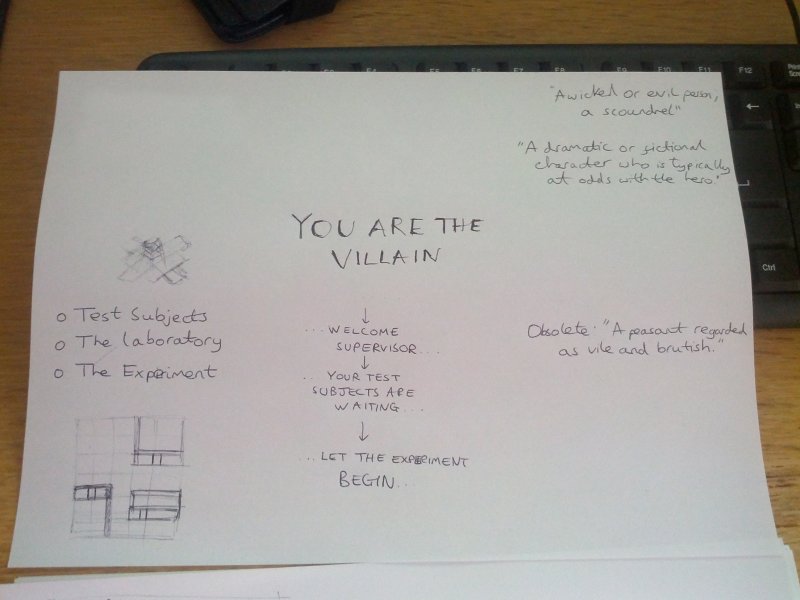 "A wicked or evil person;
a scoundrel"
"A dramatic or fictional
character who is typically
at odds with the hero."
YOU ARE THE
VILLAIN
o Test Subjects
o The Laboratory
o The Experiment
...WELCOME
SUPERVISOR...
...YOUR TEST
SUBJECTS ARE
WAITING...
...LET THE EXPERIMENT
BEGIN...
Obsolete: "A peasant regarded
as vile and brutish."
F7
F8
F9
F10
F11
F12
Ctrl